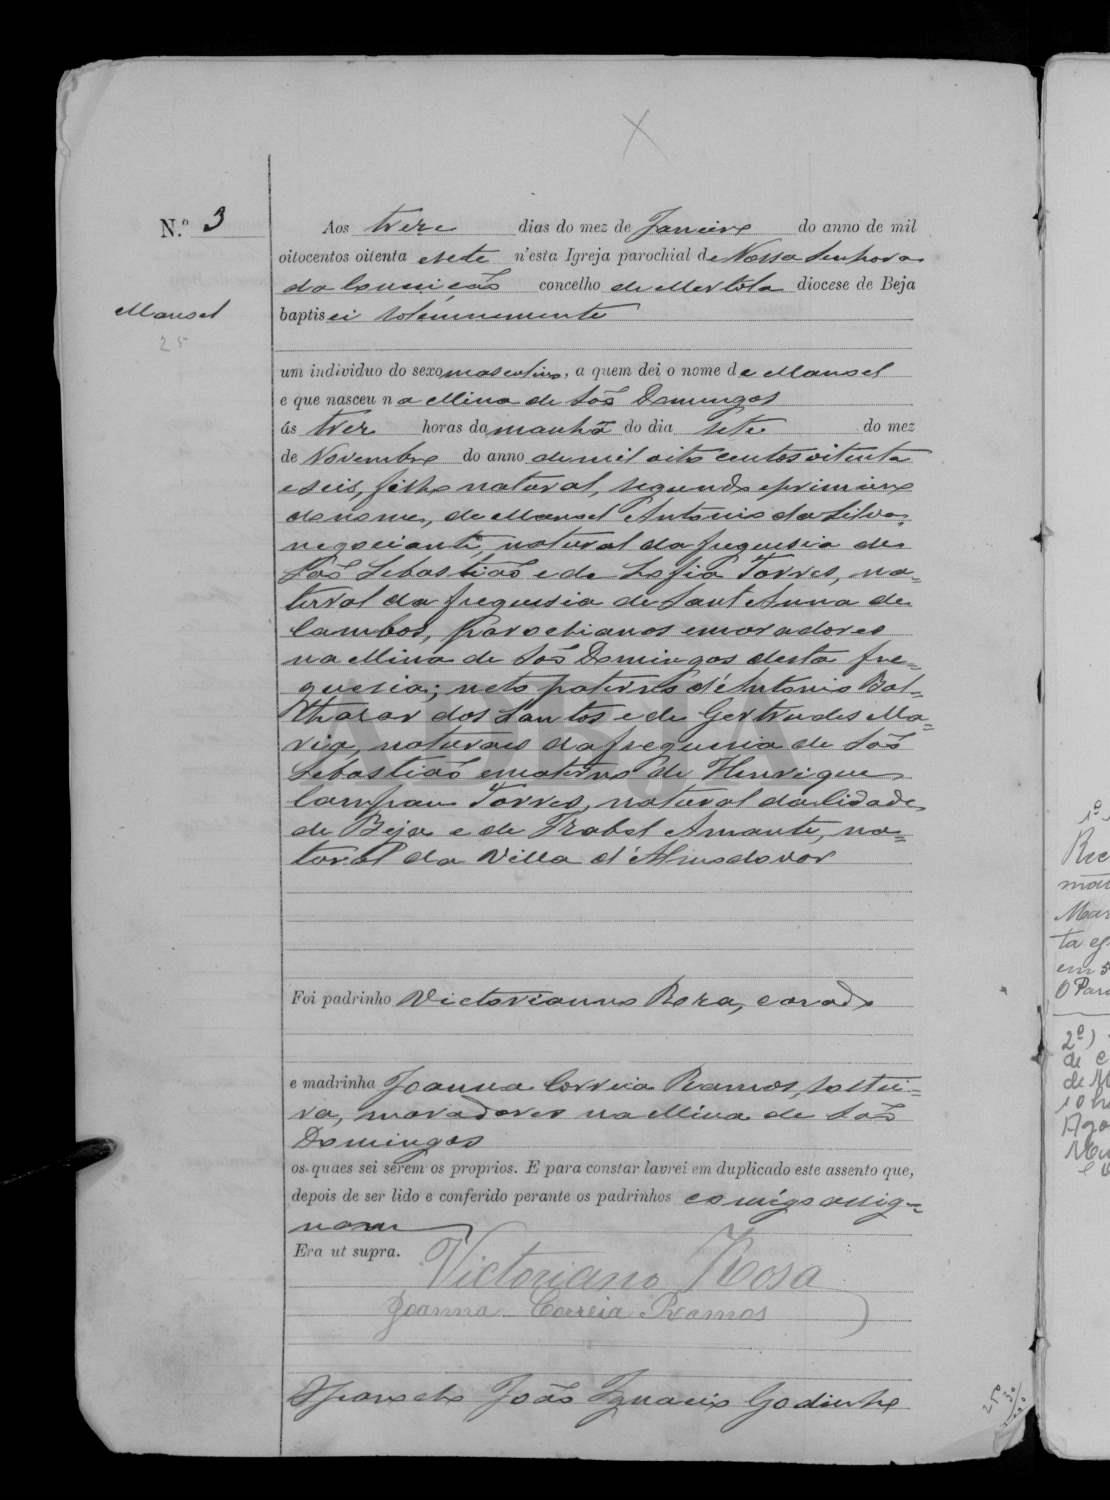 N.º 3
Aos treze dias do mez de Janeiro do anno de mil
oitocentos oitenta e sete n'esta Igreja parochial de Nossa Senhora
da Conceição concelho de Mertola diocese de Beja
Manoel
baptisei solemnemente
25
um individuo do sexo masculino, a quem dei o nome de Manoel
e que nasceu na Mina de São Domingos
ás trez horas da manhã do dia sete do mez
de Novembro do anno de mil oito centos oitenta
e seis, filho natural, segundo e primeiro
do nome, de Manoel Antonio da Silva,
negociante, natural da freguesia de
São Sebastião e de Sofia Torres, na=
tural da freguesia de Sant'Anna de
Cambas, parochianos e moradores
na Mina de São Domingos desta fre=
guesia; neto paterno d'Antonio Bal=
thazar dos Santos e de Gertrudes Ma=
ria, naturaes da freguesia de São
Sebastião e materno de Henrique
Torres, natural da Cidade
de Beja e de Izabel Amante, na=
tural da Villa d'Almodovar
ADBJA
Foi padrinho Victorianno Roza, casado
e madrinha Joanna Correia Ramos, soltei=
ra, moradores na Mina de São
Domingos
os quaes sei serem os proprios. E para constar lavrei em duplicado este assento que,
depois de ser lido e conferido perante os padrinhos comigo assig=
naram
Era ut supra.
Victoriano Rosa
Joanna Correia Ramos
O Parocho João Ignacio Godinho
1º
em 5
O Par
2º)
de
de M